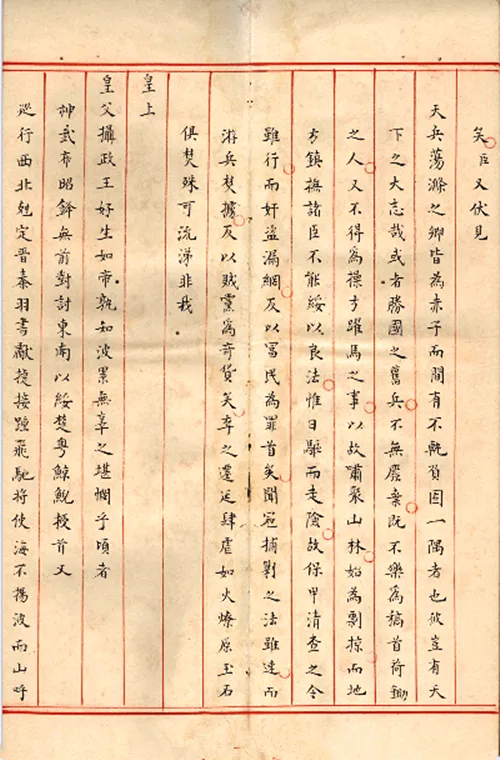 笑臣又伏見
天兵蕩滌之鄉皆為赤子而間有不軌負固一隅者也彼豈有天
下之大志哉或者勝國之舊兵不無廢棄既不樂為稿首荷鋤
之人又不得為操弓躍馬之事以故嘯聚山林始為剽掠而地
方鎮撫諸臣不能綏以良法惟日驅而走險故保甲清查之令
雖行而奸盜漏網反以冨民為罪首矣聞冦捕剿之法雖速而
游兵焚擄反以賊黨為奇貨矣卒之還延肆虐如火燎原玉石
俱焚殊可流涕非我
皇上
皇父攝政王好生如帝孰知波累無辜之堪憫乎頃者
神武布昭鋒無前對討東南以綏楚粵鯨鯢授首又
廵行西北剋定晉秦羽書獻捷接踵飛馳将使海不揚波而山呼